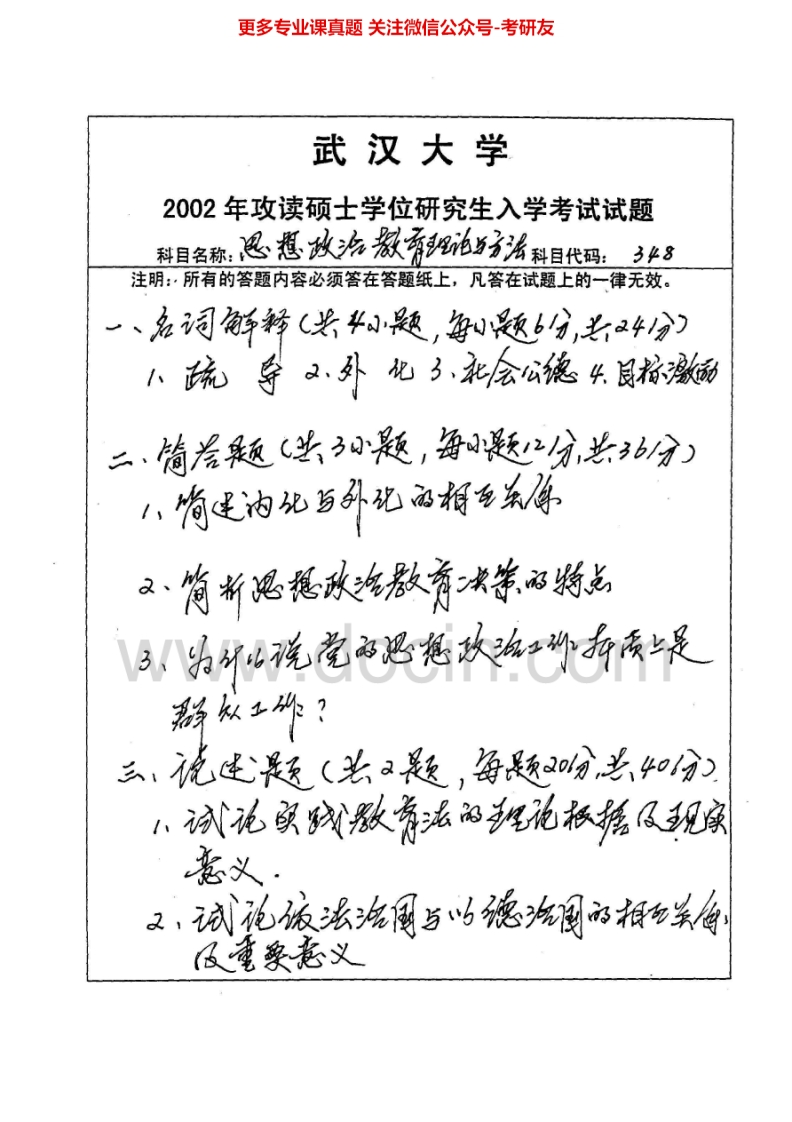 更多专业课真题 关注微信公众号-考研友
武汉大学
2002年攻读硕士学位研究生入学考试试题
科目名称：思想政治教育理论与方法 科目代码： 348
注明：所有的答题内容必须答在答题纸上，凡答在试题上的一律无效。
一、名词解释（共4小题，每小题6分，共24分）
1、疏 导 2、外 化 3、社会公德 4、目标激励
二、简答题（共3小题，每小题12分，共36分）
1、简述内化与外化的相互关系
2、简析思想政治教育决策的特点
www.docin.com
3、为什么说党的思想政治工作本质上是
群众工作？
三、论述题（共2题，每题20分，共40分）
1、试论实践教育法的理论根据及现实
意义．
2、试论依法治国与以德治国的相互关系
及重要意义